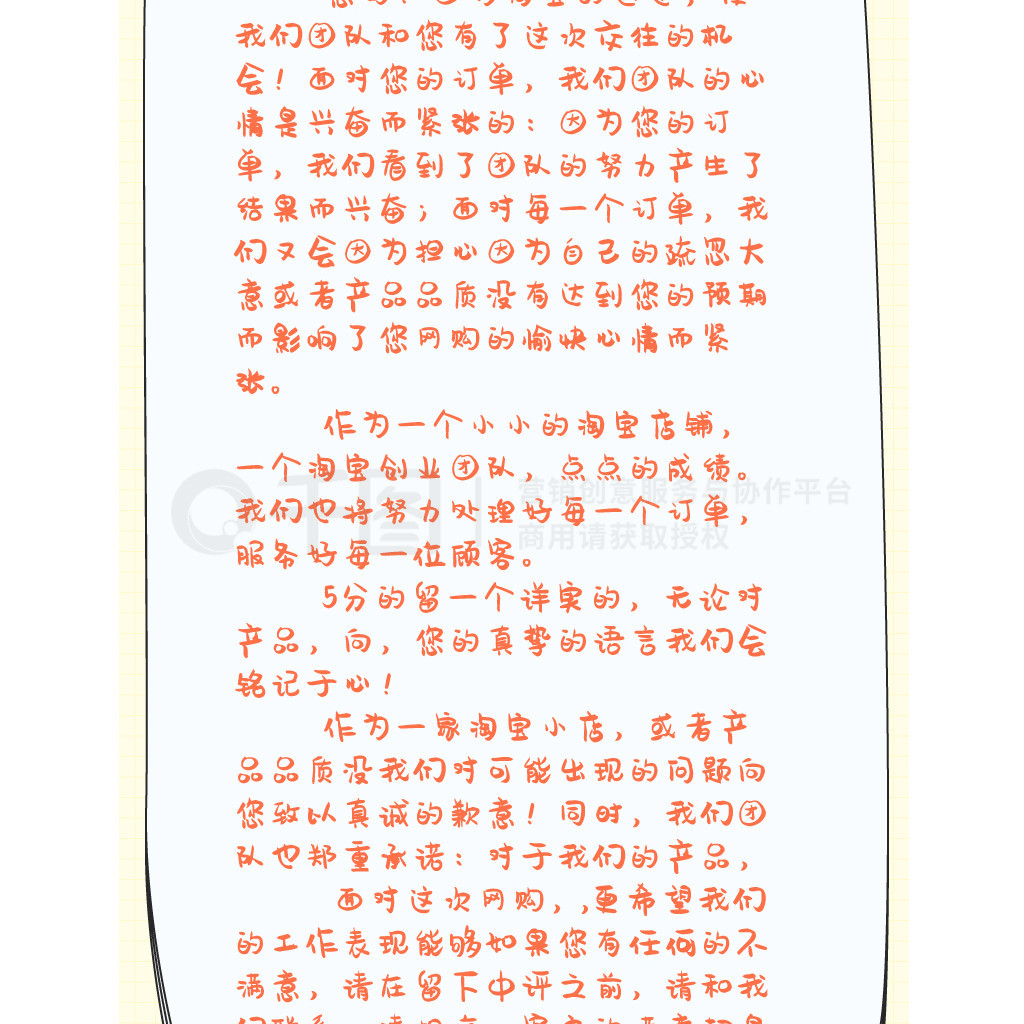 我们团队和您有了这次交往的机
会！面对您的订单，我们团队的心
情是兴奋而紧张的：因为您的订
单，我们看到了团队的努力产生了
结果而兴奋；面对每一个订单，我
们又会因为担心因为自己的疏忽大
意或者产品品质没有达到您的预期
而影响了您网购的愉快心情而紧
张。
作为一个小小的淘宝店铺，
一个淘宝创业团队，点点的成绩。
我们也将努力处理好每一个订单，
服务好每一位顾客。
5分的留一个详实的，无论对
产品，向，您的真挚的语言我们会
铭记于心！
作为一家淘宝小店，或者产
品品质没我们对可能出现的问题向
您致以真诚的歉意！同时，我们团
队也郑重承诺：对于我们的产品，
面对这次网购，,更希望我们
的工作表现能够如果您有任何的不
满意，请在留下中评之前，请和我
千图
营销创意服务与协作平台
商用请获取授权